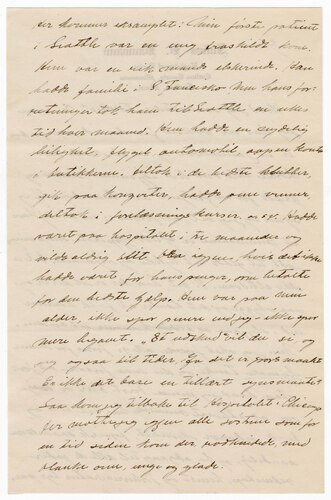 er kommer eksamplet: Min første patient
i Seattle var en ung fraskildt kone.
Hun var en rik mands elskerinde, han
hadde familie i S. Francisko men hans for-
retninger tok ham til Seattle en ukes
tid hver maaned. Hun hadde en nydelig
leilighet, flygel automobil aapen konto
i butikkerne. Deltok i de bedste klubber,
gik paa konserter, hadde pene venner
deltok i forelæsnings kurser, o.s.v. Hadde
været paa hospitalet i tre maaneder og
vilde aldrig blit hvis det ikke
hadde været for hans penger, som betalte
for den bedste hjelp. Hun var paa min
alder, ikke spor penere end jeg - ikke spor
mere begavet. "Et udskud" vil du si, og
jeg ogsaa til tider. Ja det er
En ikke det bare en tillært synsmaate?
Saa kom jeg tilbake til Hospitalet i Chicago
før mottog jeg igjen alle søstrene som for
en tid siden kom der rødkindede, med
blanke øine, unge og glade.